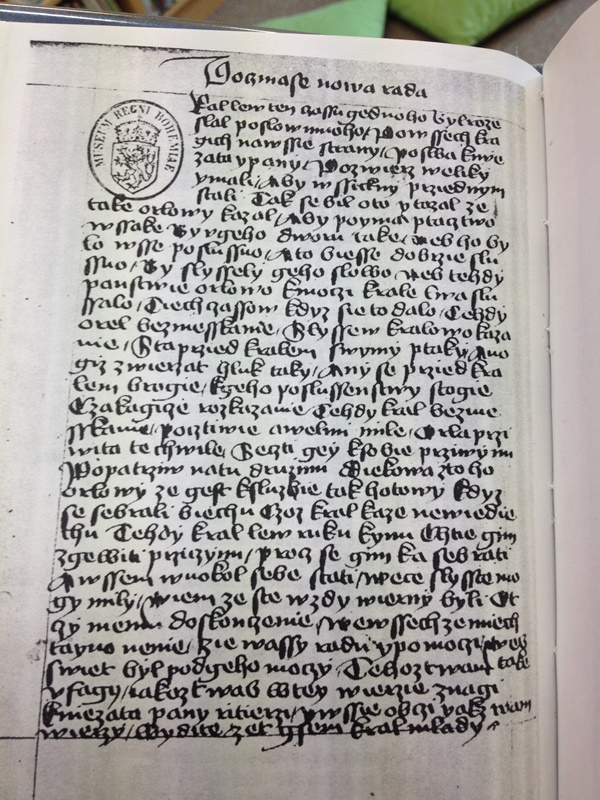 Poczina se nowa rada
MUSEUM REGNI BOHEMIAE
Kral lew ten czassu gednoho byl roze
slal poslow mnoho / Po wssech kra
gich na wssie strany / Po swa knie
zata y pany / Po zwierz weliky
y maly / Aby wssickny przed nym
stali Tak se bil oto ptazal ze
take orlowy kazal / Aby poyma ptactwo
wssake By v geho dworu take / neb ho by
lo wsse poslussno / A to biesse dobrze slu
ssno / By slyssely geho slowo / Neb tehdy
panstwie orlowo k moczi krale lwa slu
ssalo / Tiech czassow kdyz sie to dalo / Tehdy
orel bez messkanie / Slyssew kralowo kaza
nie / Sta przed kralem swymy ptaky / A wo
giz zwierzat hluk taky / Any se przed kra
lem brogie / K geho poslussenstwy stogie
Czakagicze rozkazanie Tehdy kral bez me
sskanie / Pocztiwie a welmi mile / Orla przi
wita te chwile / Se czti gey k sobie przivym
Popatrziw na tu druzinu Diekowa z toho
orlowy ze gest k sluzbie tak hotowy Kdyz
se sebrali biechu Czoz kral kaze newiedie
chu Tehdy kral lew ruku kynu Chtie gim
zgewiti przizynu / Procz se gim ka sebrati
A wssem wuokol sebe stati / Wece slysste mo
gy mily / Wiem ze ste wzdy wierny byli Ot
czy memu do skonczenie / We wssech zemiech
tayno nenie / Zie wassy radu y pomoczi / Wes
swiet byl pod geho moczy / Tehoz t wam take
v fagy / iakoz t was w tey wierzie znagi
kniezata pany ritierzi / y wssie obczi yakz wam
wierzy / Wydite ze t gsem kral mlady